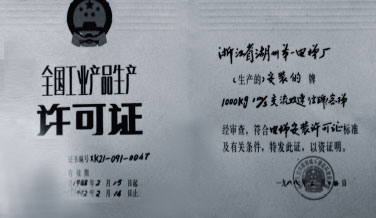 全国工业产品生产
许可证
证书编号XK21-091-0047
有效期
1988年2月15日起
2月14日止
浙江省湖州第一电梯厂
(生产的)安装的 牌
1000kg 交流双速信号客梯
经审查,符合电梯安装许可证标准
及有关条件,特发此证,以资证明。